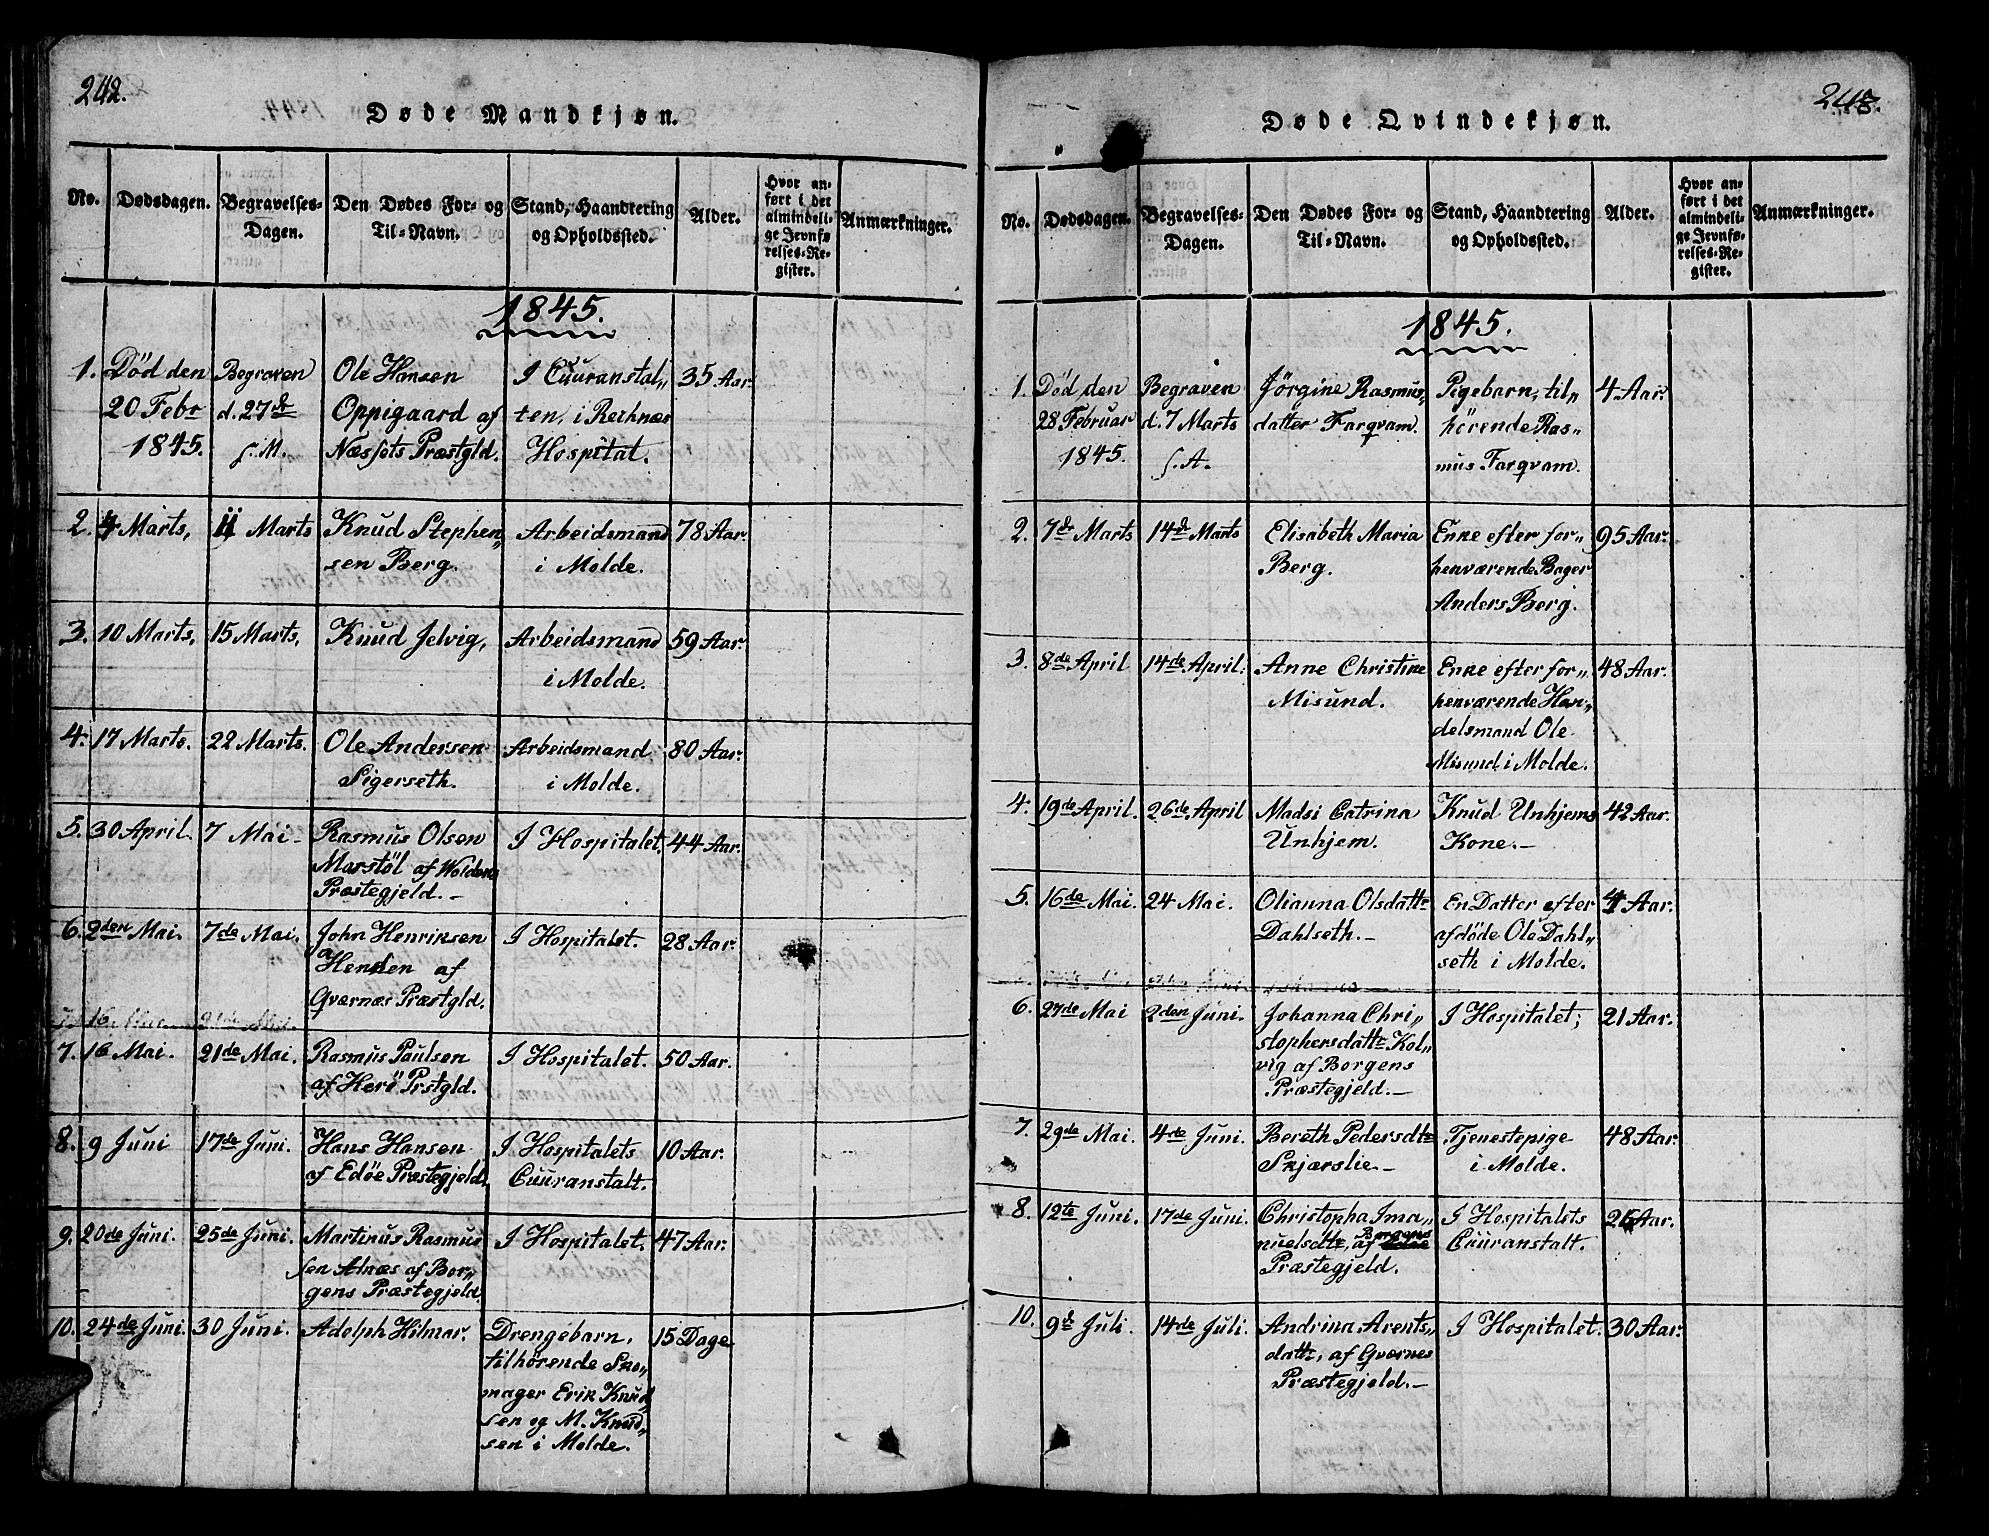 242.
Døde Mandkjøn.
No.
Dødsdagen.
Begravelses-
Dagen.
Den Dødes For- og
Til-Navn.
Stand, Haandtering
og Opholdssted.
Alder.
Hvor an-
ført i det
almindeli-
ge Jevnfø-
relses-Re-
gister.
Anmærkninger.
1845.
1.
Död den
20 Febr
1845.
Begraven
d. 27de
s. M.
Ole Hansen
Oppigaard af
Næssets Præstgld.
I Cuuranstal„
ten, i Reknæs
Hospital.
35 Aar.
2.
4 Marts,
11 Marts
Knud Stephen„
sen Berg.
Arbeidsmand
i Molde.
78 Aar.
3.
10 Marts,
15 Marts,
Knud Jelvig,
Arbeidsmand
i Molde.
59 Aar.
4.
17 Marts.
22 Marts.
Ole Andersen
Sigerseth.
Arbeidsmand
i Molde.
80 Aar.
5.
30 April.
7 Mai-
Rasmus Olsen
Marstöl af Woldens
Præstegjeld.-
I Hospitalet.
44 Aar.
6.
2den Mai.
7de Mai.
John Henriksen
af
Qværnæs Præstgld.
I Hospitalet.
28 Aar.
7.
16 Mai.
21de Mai.
Rasmus Paulsen
af Herö Prstgld.
I Hospitalet.
50 Aar.
8.
9 Juni
17de Juni.
Hans Hansen
af Edöe Præstegjeld.
I Hospitalets
Cuuranstalt.
10 Aar.
9.
20de Juni.
25de Juni.
Martinus Rasmus
sen Alnæs af Bor„
gens Præstegjeld.
I Hospitalet.
47 Aar.
10.
24de Juni.
30 Juni.
Adolph Hilmar.
Drengebarn,
tilhörende Sko„
mager Erik Knud„
sen og M. Knud„
sen i Molde.
15 Dage
243.
Døde Qvindekjøn.
No.
Dødsdagen.
Begravelses-
Dagen.
Den Dødes For- og
Til-Navn.
Stand, Haandtering
og Opholdssted.
Alder.
Hvor an-
ført i det
almindeli-
ge Jevnfø-
relses-Re-
gister.
Anmærkninger.
1845.
1.
Död den
28 Februar
1845.
Begraven
d. 7 Marts
s. A.
Jörgine Rasmus„
datter Farqvam.
Pigebarn, til„
hörende Ras„
mus Farqvam.
4 Aar.
2.
7de Marts
14de Marts
Elisabeth Maria
Berg.
Enke efter for„
henværende Bager
Anders Berg.
95 Aar.
3.
8de April
14de April.
Anne Christine
Misund.
Enke efter for„
henværende Han„
delsmand Ole
Misund i Molde.
48 Aar.
4.
19de April.
26de April
Madsi Catrina
Unhjem.
Knud Unhjems
Kone.-
42 Aar.
5.
16de Mai.
24 Mai.
Olianna Olsdattr
Dahlseth.-
En Datter efter
afdöde Ole Dahl„
seth i Molde.
Aar.
6.
27de Mai
2den Juni.
Johanna Chri„
stophersdattr Kol„
vig af Borgens
Præstegjeld.-
I Hospitalet;
21 Aar.
7.
29de Mai.
4de Juni.
Bereth Pedersdtr
Skjærslie.-
Tjenestepige
i Molde.
48 Aar.
8.
12te Juni.
17de Juni.
Christopha Ima„
nuelsdtr, af Borgens
Præstegjeld.
I Hospitalets
Cuuranstalt.
Aar.
10.
9de Juli.
14de Juli.
Andrina Arents„
dattr, af Qværnes
Præstegjeld.-
I Hospitalet.
30 Aar.